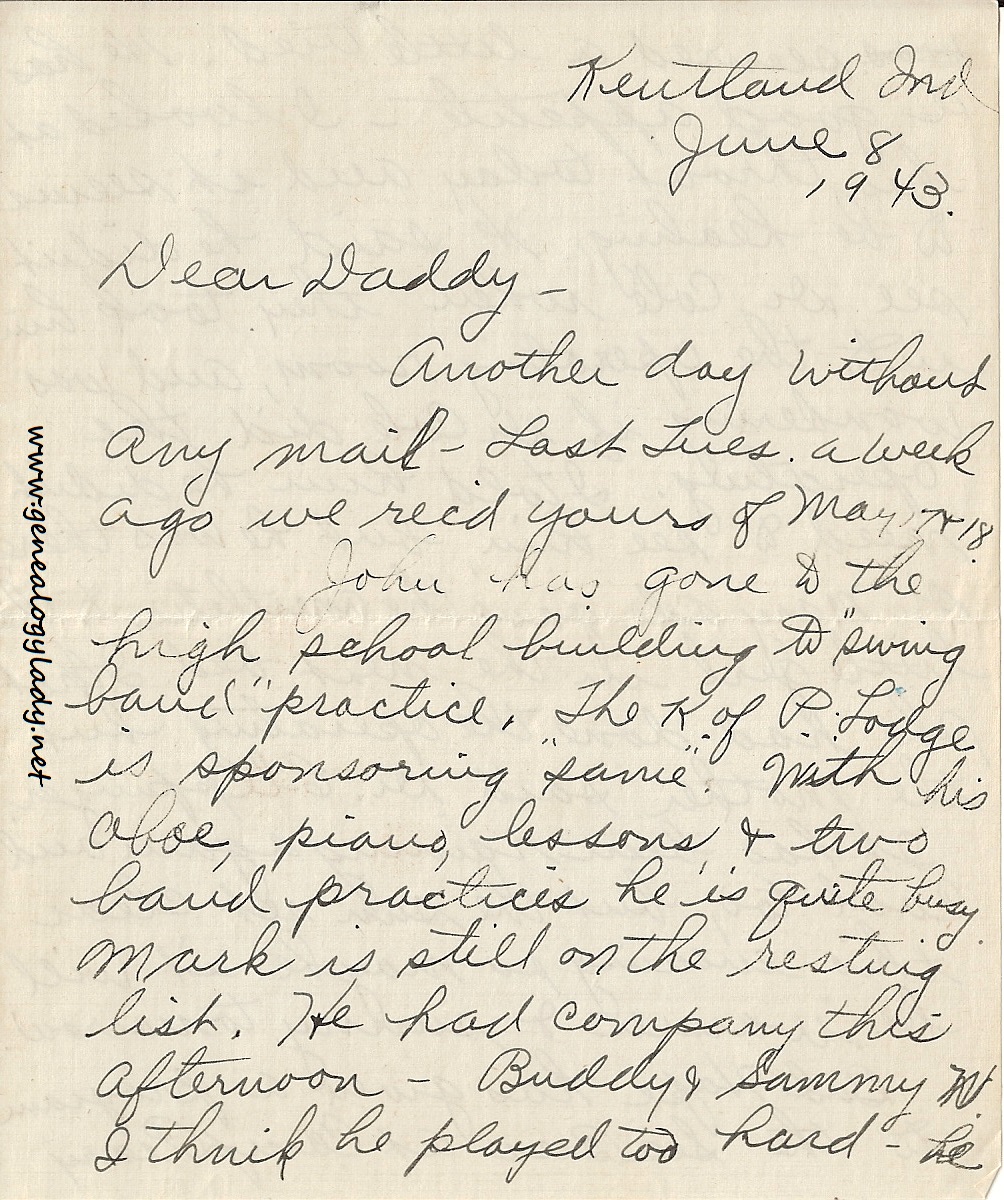 Kentland Ind
June 8
1943.
Dear Daddy -
Another day without
any mail - Last Tues. a week
ago we rec'd yours of May 17 + 18.
John has gone to the
high school building to "swing
band" practice. The K. of P. Lodge
is sponsoring "same". With his
oboe, piano, lessons, & two
band practices he is quite busy.
Mark is still on the resting
list. He had company this
afternoon - Buddy & Sammy
I think he played too hard - he
www.genealogylady.net